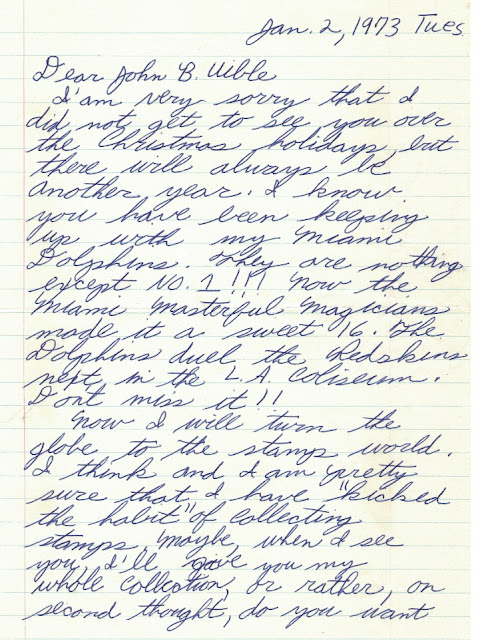 Jan. 2, 1973 Tues.
Dear John B. Uible
I'am very sorry that I
did not get to see you over
the Christmas holidays, but
there will always be
another year. I know
you have been keeping
up with my Miami
Dolphins. They are nothing
except NO. 1!!! Now the
Miami Masterful Magicians
made it a sweet 16. The
Dolphins duel the Redskins
next, in the L.A. Coliseum.
Don't miss it!!
Now I will turn the
globe to the stamps world.
I think and I am pretty
sure that I have "kicked
the habit" of collecting
stamps, maybe, when I see
you I'll give you my
whole collection, or rather, on
second thought, do you want